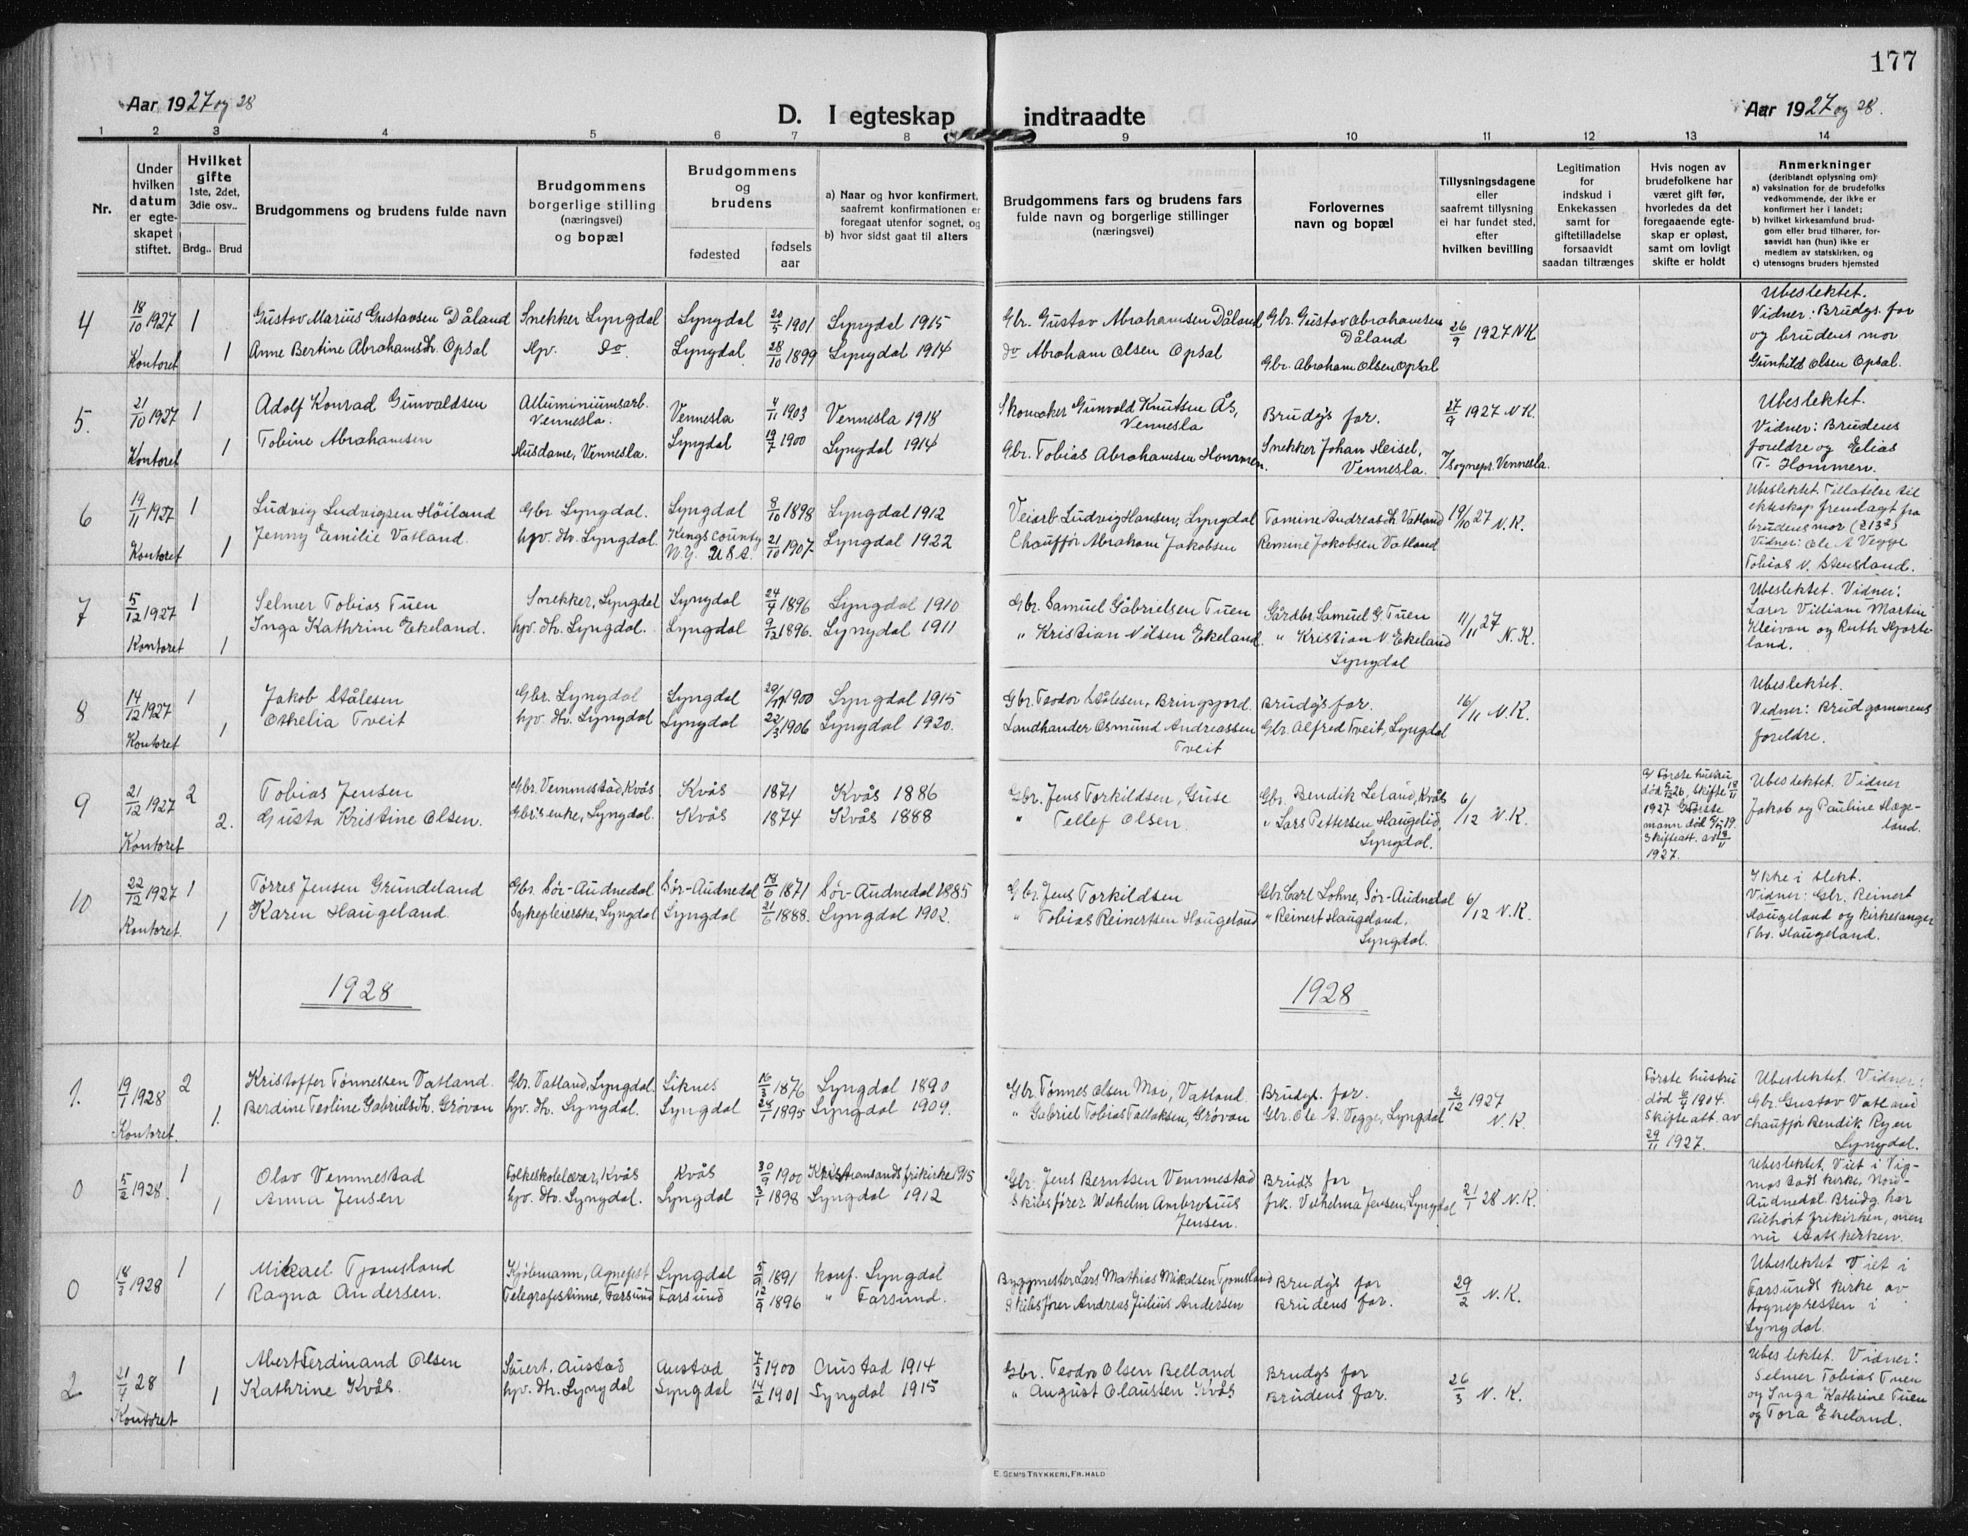 177
Aar 1927 og 28
D. I egteskap indtraadte
Aar 1927 og 28.
1 2 3 4 5 6 7 8 9 10 11 12 13 14
Nr.
Under
hvilken
datum
er egte-
skapet
stiftet.
Hvilket
gifte
1ste, 2det,
3die osv..
Brdg..
Brud
Brudgommens og brudens fulde navn
Brudgommens
borgerlige stilling
(næringsvei)
og bopæl
Brudgommens
og
brudens
fødested
fødsels
aar
a) Naar og hvor konfirmert,
saafremt konfirmationen er
foregaat utenfor sognet, og
b) hvor sidst gaat til alters
Brudgommens fars og brudens fars
fulde navn og borgerlige stillinger
(næringsvei)
Forlovernes
navn og bopæl
Tillysningsdagene
eller
saafremt tillysning
ei har fundet sted,
efter
hvilken bevilling
Legitimation
for
indskud i
Enkekassen
samt for
giftetilladelse
forsaavidt
saadan tiltrænges
Hvis nogen av
brudefolkene har
været gift før,
hvorledes da det
foregaaende egte-
skap er opløst,
samt om lovligt
skifte er holdt
Anmerkninger
(deriblandt oplysning om)
a) vaksination for de brudefolks
vedkommende, der ikke er
konfirmert her i landet;
b) hvilket kirkesamfund brud-
gom eller brud tilhører, for-
saavidt han (hun) ikke er
medlem av statskirken, og
c) utensogns bruders hjemsted
4
18/10 1927
Kontoret
1
1
Gustav Marius Gustavsen Dåland
Anne Bertine Abrahamsdtr. Opsal
Snekker Lyngdal
Hpv. do.
Lyngdal
Lyngdal
20/5 1901
28/10 1899
Lyngdal 1915
Lyngdal 1914
Gbr. Gustav Abrahamsen Dåland
do Abraham Olsen Opsal
Gbr. Gustav Abrahamsen
Dåland
Gbr. Abraham Olsen Opsal
26/9 1927 N.K.
Ubeslektet.
Vidner: Brudgs. far
og brudens mor
Gunhild Olsen Opsal.
5.
21/10 1927
Kontoret
1
1
Adolf Konrad Gunvaldsen
Tobine Abrahamsen
Alluminiumsarb.
Vennesla.
Husdame, Vennesla.
Vennesla
Lyngdal
4/11 1903
19/7 1900
Vennesla 1918
Lyngdal 1914
Skomaker Gunvald Knutsen Ås,
Vennesla
Gbr. Tobias Abrahamsen Hommen.
Brudgs far.
Snekker Johan Heisel,
Vennesla.
27/9 1927 N.K.
Ubeslektet.
Vidner: Brudens
foreldre og Elias
T. Hommen.
6
19/11 1927
Kontoret
1
1
Ludvig Ludvigsen Høiland
Jenny Emilie Vatland.
Gbr Lyngdal.
hjv. dtr. Lyngdal.
Lyngdal
Kings County
N.Y. U.S.A.
8/10 1898
21/10 1907
Lyngdal 1912
Lyngdal 1922
Veiarb. Ludvig Hansen, Lyngdal
Chauffør Abraham Jakobsen
Tomine Andreasdtr. Vatland
Remine Jakobsen Vatland
19/10 27 N.K.
Ubeslektet. Tillatelse til
ekteskap fremlagt fra
brudens mor (213²)
Vidner: Ole A Vegge
Tobias N. Stensland.
7
5/12 1927
Kontoret
1
1
Selmer Tobias Tuen
Inga Kathrine Ekeland.
Snekker, Lyngdal
hjv. dtr. Lyngdal.
Lyngdal
Lyngdal
24/4 1896
9/12 1896.
Lyngdal 1910
Lyngdal 1911
Gbr. Samuel Gabrielsen Tuen
" Kristian Nilsen Ekeland.
Gårdbr. Samuel G. Tuen
" Kristian N Ekeland
Lyngdal
11/11 27
N.K.
Ubeslektet. Vidner:
Lærer Villiam Martin
Kleivan og Ruth Hjorte-
land.
8
14/12 1927
Kontoret
1
1
Jakob Stålesen
Othelia Tveit
Gbr. Lyngdal
hjv. dtr. Lyngdal
Lyngdal
Lyngdal
1900
22/3 1906
Lyngdal 1915
Lyngdal 1920.
Gbr. Teodor Stålesen, Bringsjord.
Landhandler Osmund Andreassen
Tveit
Brudgs far.
Gbr. Alfred Tveit, Lyngdal
16/11 N.K.
Ubeslektet.
Vidner: Brudgommens
foreldre.
9
21/12 1927
Kontoret
2
2.
Tobias Jensen
Gusta Kristine Olsen.
Gbr. Vemmestad, Kvås
Gbr's enke, Lyngdal.
Kvås
Kvås
1871
1874
Kvås 1886
Kvås 1888
Gbr. Jens Torkildsen, Guse
" Tellef Olsen.
Gbr. Bendik Leland, Kvås
" Lars Pettersen Haugelid,
Lyngdal.
6/12 N.K.
Første hustru
død 26, skifte
1927
mann død 19.
Skifteatt. av 18/11
1927.
Ubeslektet. Vidner
Jakob og Pauline Hæge-
land.
10
22/12 1927
Kontoret.
1
1
Tørres Jensen Grundeland
Karen Haugeland.
Gbr. Sør-Audnedal
Sykepleierske, Lyngdal
Sør-Audnedal
Lyngdal
18/6 1871
21/6 1888.
Sør-Audnedal 1885
Lyngdal 1902.
Gbr. Jens Torkildsen
" Tobias Reinertsen Haugeland
Gbr. Carl Lohne, Sør-Audnedal
" Reinert Haugeland,
Lyngdal.
6/12 N.K.
Ikke i slekt.
Vidner: Gbr. Reinert
Haugeland og kirkesanger
Th. Haugeland.
1928
1928
1.
19/1 1928
Kontoret.
2
1.
Kristoffer Tønnessen Vatland.
Berdine Teoline Gabrielsdtr. Grøvan
Gbr. Vatland, Lyngdal.
hjv. dtr. Lyngdal.
Liknes
Lyngdal
16/3 1876
24/1 1895
Lyngdal 1890
Lyngdal 1909.
Gbr. Tønnes Olsen Moi, Vatland.
" Gabriel Tobias Tallaksen, Grøvan
Brudgs. far.
Gbr. Ole A. Vegge, Lyngdal
2/12 1927
N.K.
Første hustru
død 1904.
Skifteatt. av
29/11 1927.
Ubeslektet. Vidner:
Gbr. Gustav Vatland
Chauffør Bendik Ryen
Lyngdal.
0
5/2 1928.
1
1
Olav Vemmestad
Anna Jensen
Folkeskolelærer, Kvås
hjv. dtr. Lyngdal.
Kvås
Lyngdal
30/9 1900
3/1 1898
Kristiansands frikirke 1915
Lyngdal 1912
Gbr. Jens Berntsen Vemmestad
Skibsfører Wilhelm Ambrosius
Jensen.
Brudgs far
frk. Vilhelma Jensen, Lyngdal
21/1 28 N.K.
Ubeslektet. Viet i Vig-
mostads kirke, Nord-
Audnedal. Brudg. har
tilhørt frikirken, men
nu statskirken.
0
18/3 1928
1
1
Mikael Tjomsland
Ragna Andersen.
Kjøbmann, Agnefest
Telegrafistinne, Farsund
Lyngdal
Farsund
5/9 1891
12/9 1896
konf. Lyngdal
" Farsund.
Byggmester Lars Mathias Mikalsen Tjomsland
Skibsfører Andreas Julius Andersen
Brudgs far
Brudens far.
29/2 N.K.
Ubeslektet Viet i
Farsunds kirke av
sognepresten i
Lyngdal.
2
21/4 28
Kontoret
1
1
Albert Ferdinand Olsen
Kathrine Kvås.
Austad
hjv. dtr. Lyngdal
Austad
Lyngdal
7/3 1900
14/2 1901
Austad 1914
Lyngdal 1915
Gbr. Teodor Olsen Belland
" August Olaussen Kvås
Brudgs far
Brudens far.
26/3 N.K.
Ubeslektet. Vidner:
Selmer Tobias Tuen
og Inga Kathrine Tuen
og Tora Ekeland.
E. SEM'S TRYKKERI, FR.HALD